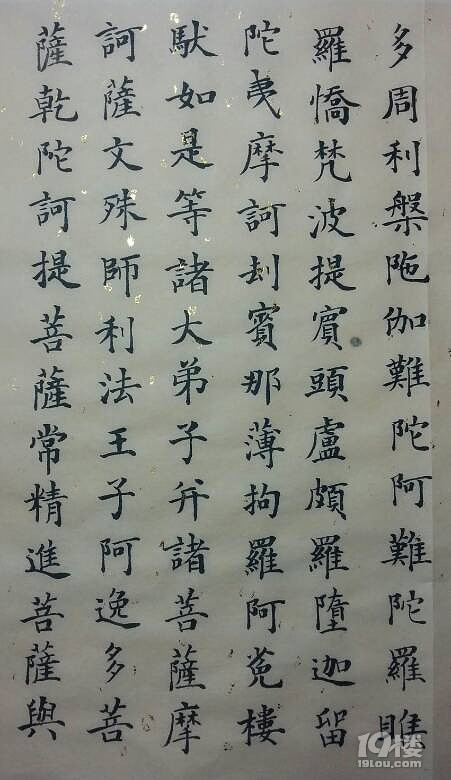 多周利槃陁伽難陀阿難陀羅睺
羅憍梵波提賓頭盧頗羅墮迦留
陀夷摩訶刦賓那薄拘羅阿㝹樓
馱如是等諸大弟子并諸菩薩摩
訶薩文殊師利法王子阿逸多菩
薩乾陀訶提菩薩常精進菩薩與
19楼
19lou.com